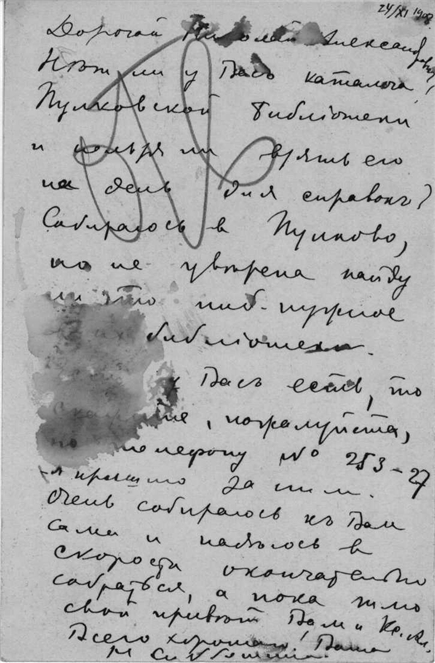 24/XI 19
Дорогой Николай Александрович,
Нѣтъ ли у Васъ каталога
Пулковской библіотеки
и нельзя ли взять его
на день для справокъ?
Собираюсь в Пулково,
но не увѣрена найду
ли что нибудь нужное
библіотеки.
у Васъ есть, то
, пожалуйста,
телефону № 253-27
я пришлю за ним.
Очень собираюсь къ Вам
сама и надѣюсь в
скорости окончательно
собраться, а пока шлю
свой привѣт Вам и
Всего хорошаго! Ваша
М